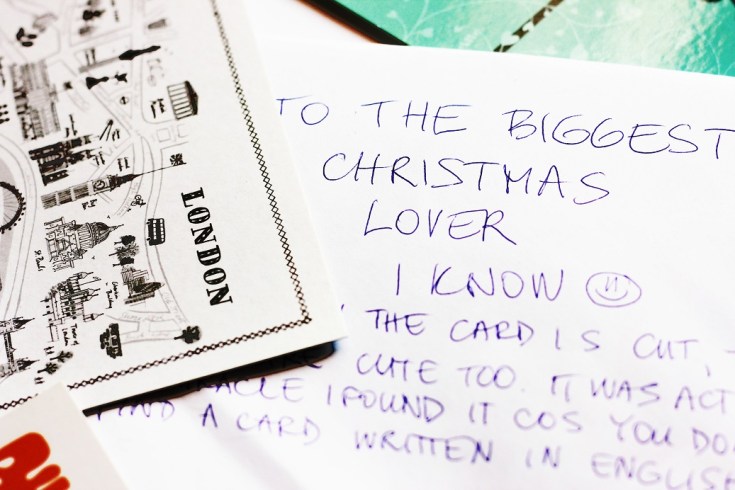 LONDON
TO THE BIGGEST
CHRISTMAS
LOVER
I KNOW
THE CARD IS CUT,
CUTE TOO. IT WAS ACT
ACLE I FOUND IT COS YOU DO
FIND A CARD WRITTEN IN ENGLISH